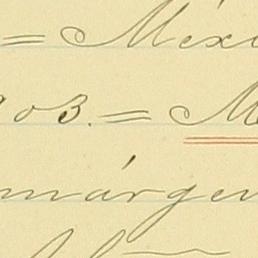 = Méxi
903. = Mé
márgen